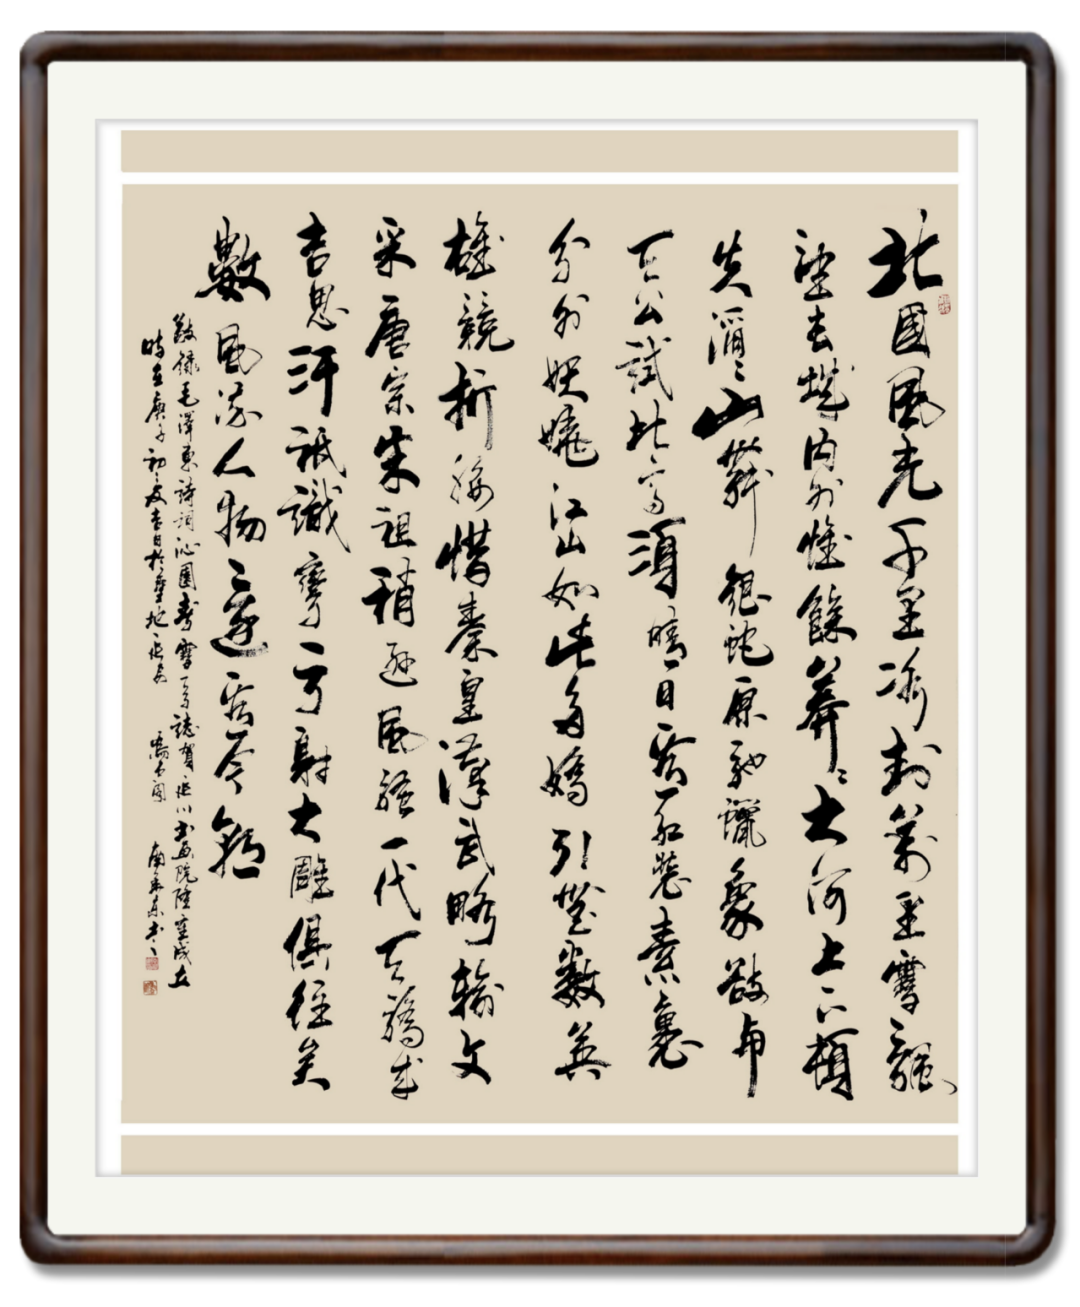 北國風光千里冰封萬里雪飄
望長城内外惟餘莽〻大河上下頓
失滔〻山舞銀蛇原馳蠟象欲與
天公試比高須晴日看紅裝素裹
分外妖嬈江山如此多嬌引無數英
雄競折腰惜秦皇漢武略輸文
采唐宗宋祖稍遜風騷一代天驕成
吉思汗祇識彎弓射大雕俱往矣
數風流人物還看今朝
敬錄毛澤東詩詞沁園春雪一首誌賀延川書画院隆重成立
時在庚子初夏吉日於聖地延安